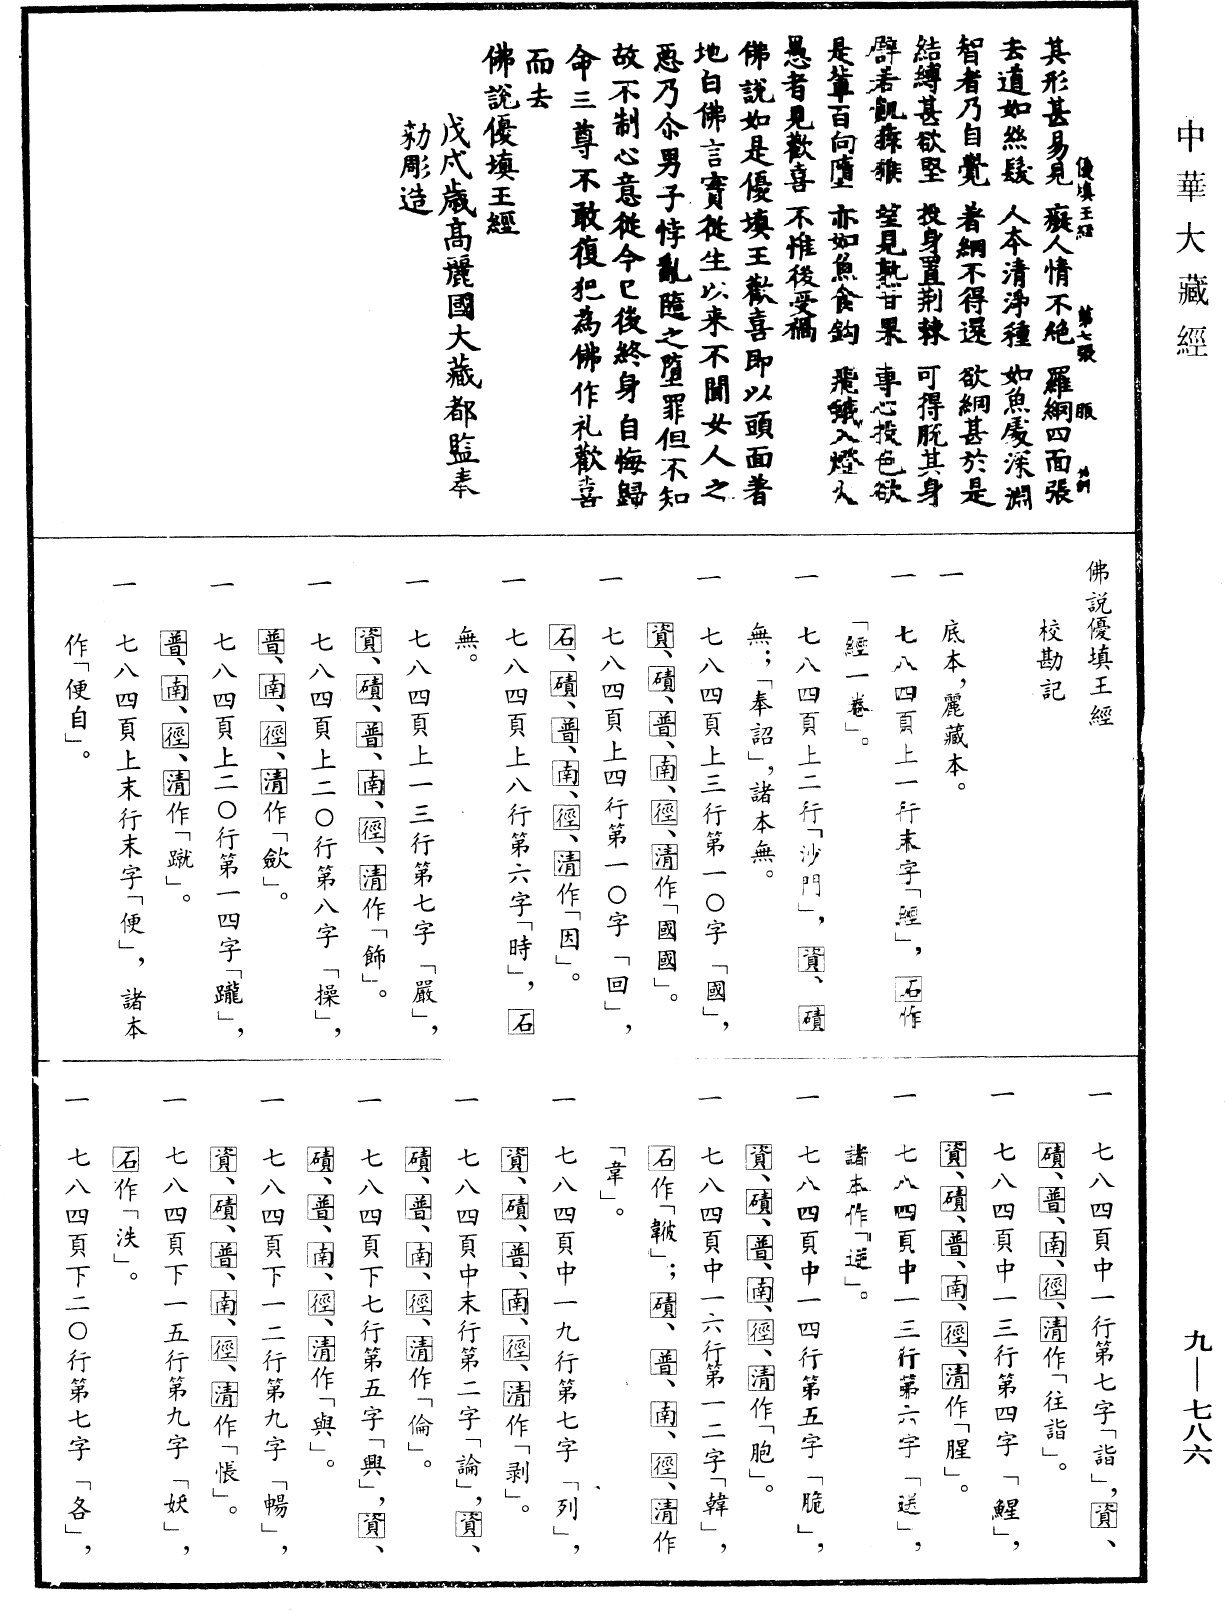 中華大藏經
其形甚易見　癡人情不絕　羅網四面張
優填王經　第七張　賑
去道如絲髮　人本清淨種　如魚處深淵
智者乃自覺　著網不得還　欲網甚於是
結縛甚欲堅　投身置荆棘　可得脫其身
望見熟甘果　專心投色欲
是輩百向墮　亦如魚食鈎　飛蛾入燈火
愚者見歡喜　不惟後受禍
佛說如是優填王歡喜即以頭面著
地白佛言實從生以來不聞女人之
惡乃尒男子悖亂隨之墮罪但不知
故不制心意從今已後終身自悔歸
命三尊不敢復犯為佛作礼歡喜
而去
佛說優填王經
戊戌歲高麗國大藏都監奉
勑彫造
佛說優填王經
校勘記
一　底本，麗藏本。
一　七八四頁上一行末字「經」，石作
「經一卷」。
一　七八四頁上二行「沙門」，資、磧
無；「奉詔」，諸本無。
一　七八四頁上三行第一〇字「國」，
資、磧、普、南、徑、清作「國國」。
一　七八四頁上四行第一〇字「回」，
石、磧、普、南、徑、清作「因」。
一　七八四頁上八行第六字「時」，石
無。
一　七八四頁上一三行第七字「嚴」，
資、磧、普、南、徑、清作「飾」。
一　七八四頁上二〇行第八字「操」，
普、南、徑、清作「斂」。
一　七八四頁上二〇行第一四字「躘」，
普、南、徑、清作「蹴」。
一　七八四頁上末行末字「便」，諸本
作「便自」。
一　七八四頁中一行第七字「詣」，資、
磧、普、南、徑、清作「往詣」。
一　七八四頁中一三行第四字「鯹」，
資、磧、普、南、徑、清作「腥」。
一　七八四頁中一三行第六字「送」，
諸本作「逆」。
一　七八四頁中一四行第五字「脆」，
資、磧、普、南、徑、清作「胞」。
一　七八四頁中一六行第一二字「韓」，
石作「鞁」；磧、普、南、徑、清作
「韋」。
一　七八四頁中一九行第七字「列」，
資、磧、普、南、徑、清作「剥」。
一　七八四頁中末行第二字「論」，資、
磧、普、南、徑、清作「倫」。
一　七八四頁下七行第五字「興」，資、
磧、普、南、徑、清作「與」。
一　七八四頁下一二行第九字「暢」，
資、磧、普、南、徑、清作「悵」。
一　七八四頁下一五行第九字「妖」，
石作「泆」。
一　七八四頁下二〇行第七字「各」，
九—七八六